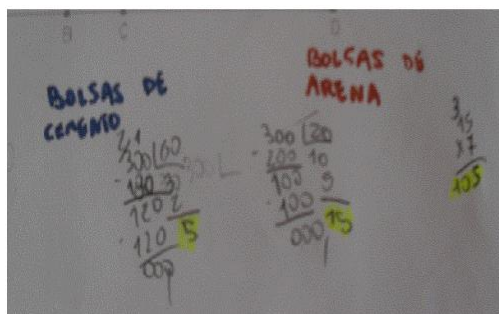 B C D
BOLSAS DE
CEMENTO
300 60
- 180 3
120 2
- 120 5
000
BOLSAS DE
ARENA
300 20
- 200 10
100 5
- 100 15
000
3
15
x 7
105